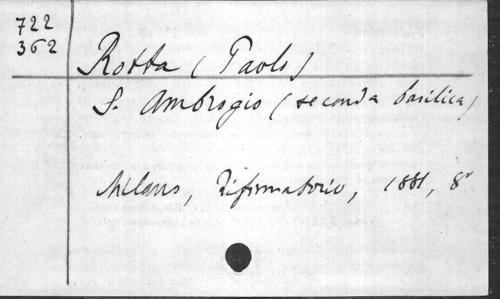 722
362
Rotta (Paolo)
S. Ambrogio (seconda basilica)
Milano, Riformatorio, 1881, 8°